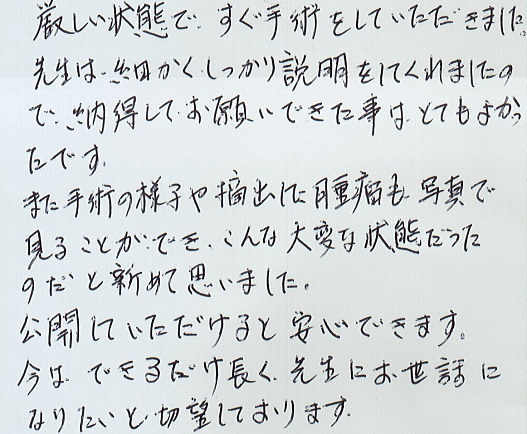 厳しい状態で、すぐ手術をしていただきました。
先生は、細かく、しっかり説明をしてくれましたの
で、納得して、お願いできた事は、とてもよかっ
たです。
また手術の様子や摘出した腫瘤も、写真で
見ることができ、こんな大変な状態だった
のだと新めて思いました。
公開していただけると安心できます。
今は、できるだけ長く、先生にお世話に
なりたいと切望しております。